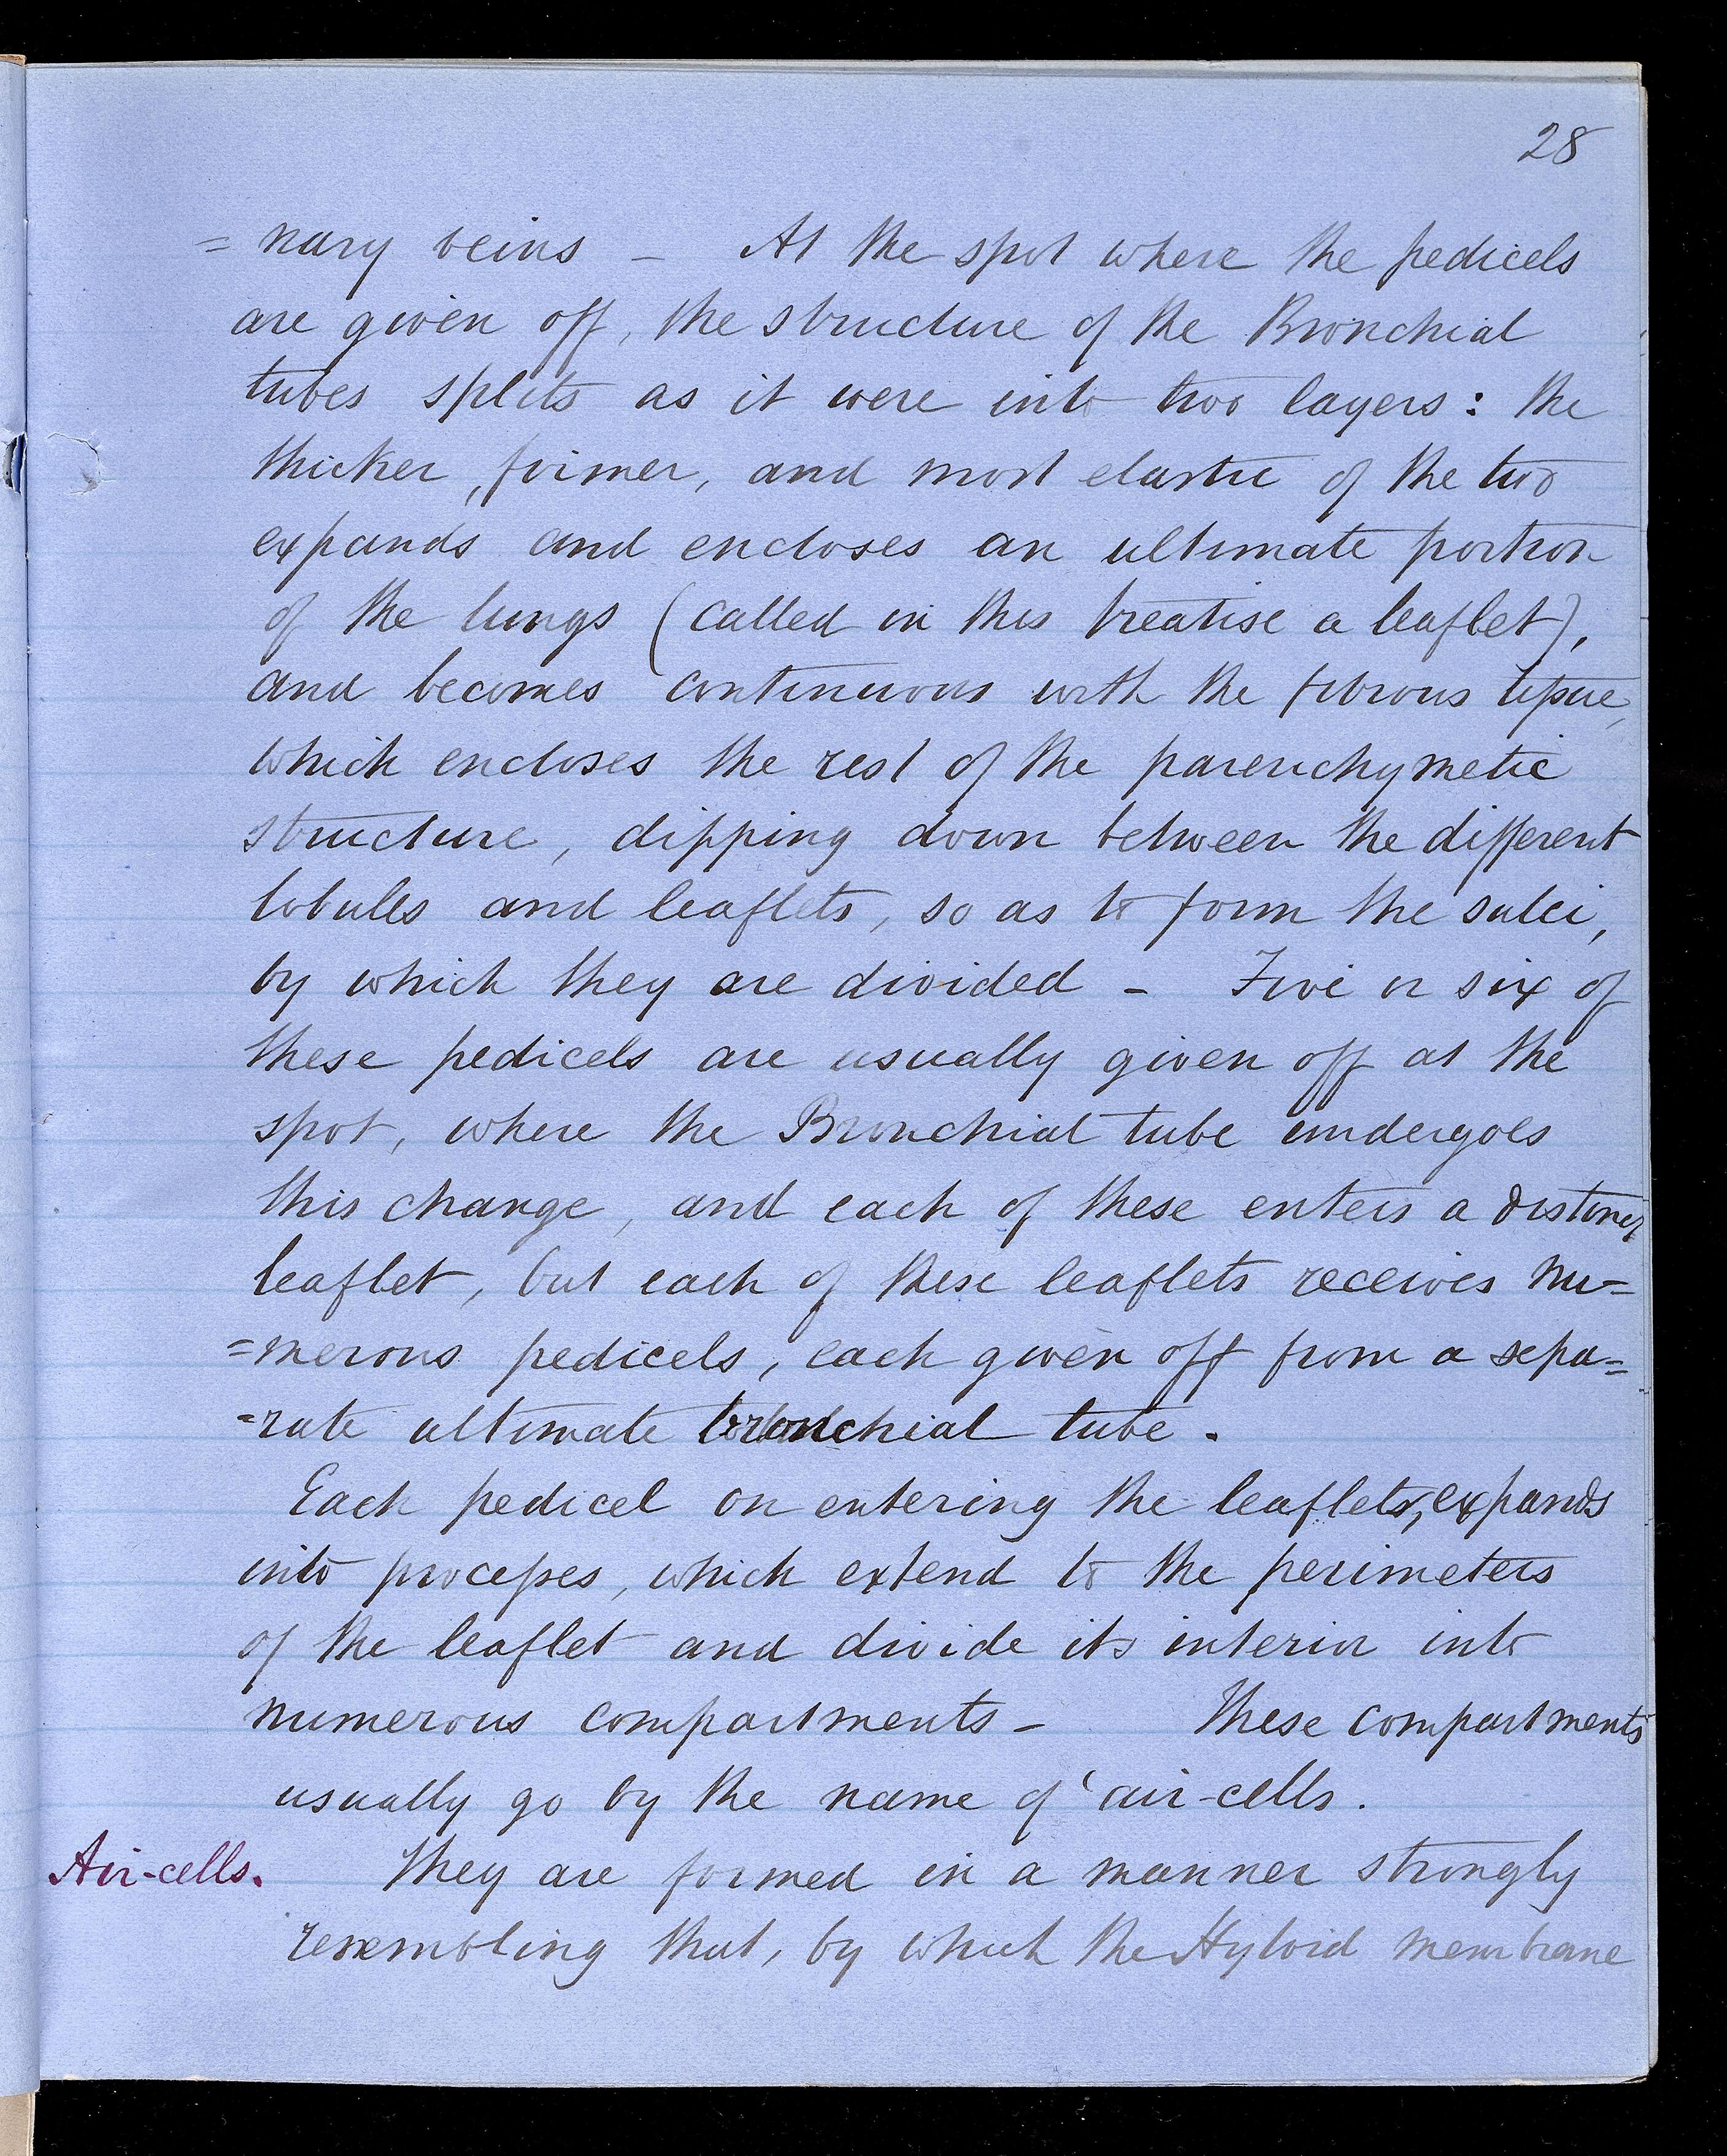 28
= nary veins – At the spot where the pedicels
are given off, the structure of the Bronchial
tubes splits as it were into two layers: the
thicker, firmer, and most elastic of the two
expands and encloses an ultimate portion
of the lungs (called in this treatise a leaflet),
and becomes continuous with the fibrous tissue,
which encloses the rest of the parenchymetic
structure, dipping down between the different
lobules and leaflets, so as to form the sulci,
by which they are divided – Five or six of
these pedicels are usually given off at the
spot, where the Bronchial tube undergoes
this change, and each of these enters a distinct
leaflet, but each of these leaflets receives nu=
=merous pedicels, each given off from a sepa=
=rate ultimate bronchial tube.
Each pedicel on entering the leaflets, expands
into processes, which extend to the perimeters
of the leaflet and divide its interior into
numerous compartments – These compartments
usually go by the name of ‘air-cells.
Air-cells. They are formed in a manner strongly
resembling that, by which the Hyloid membrane